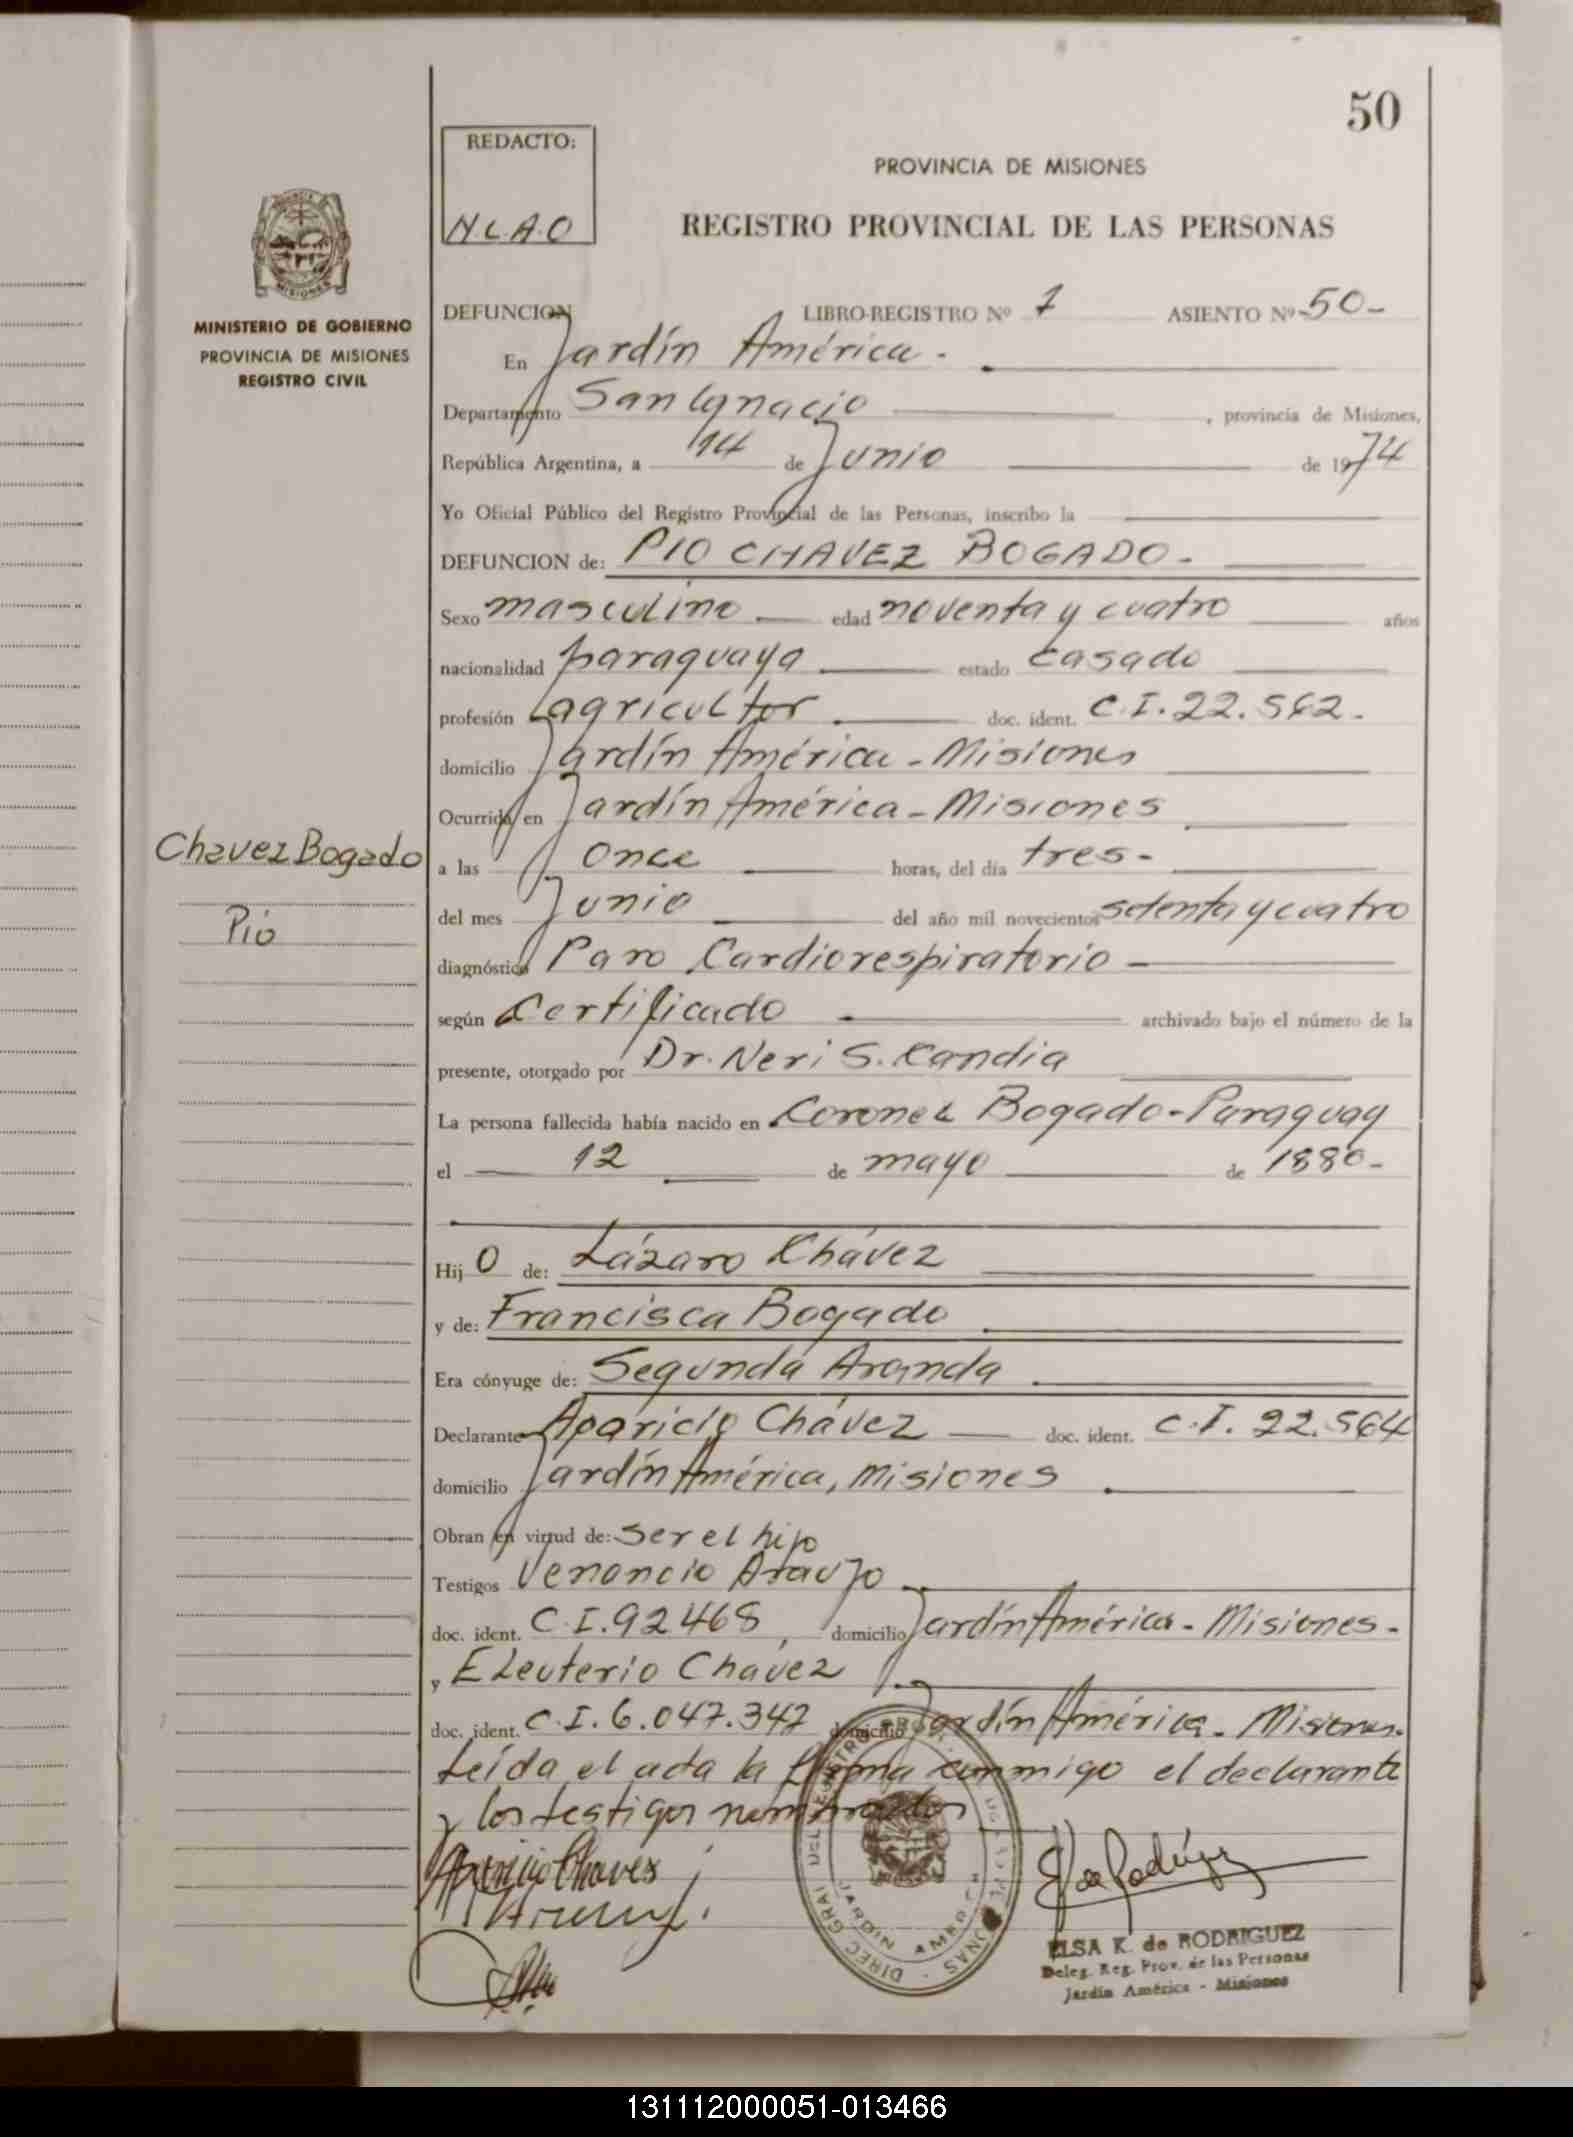 50
REDACTO:
N.L.A.O
PROVINCIA DE MISIONES
REGISTRO PROVINCIAL DE LAS PERSONAS
MINISTERIO DE GOBIERNO
PROVINCIA DE MISIONES
REGISTRO CIVIL
DEFUNCION LIBRO-REGISTRO Nº 1 ASIENTO Nº 50-
En Jardín América.
Departamento San Ignacio, provincia de Misiones,
República Argentina, a 14 de Junio de 1974
Yo Oficial Público del Registro Provincial de las Personas, inscribo la
DEFUNCION de: PIO CHAVEZ BOGADO-
Sexo masculino edad noventa y cuatro años
nacionalidad paraguaya estado casado
profesión agricultor doc. ident. C.I. 22.562.
domicilio Jardín América - Misiones
Ocurrida en Jardín América - Misiones
Chavez Bogado
Pío
a las once horas, del día tres-
del mes Junio del año mil novecientos setenta y cuatro
diagnóstico Paro Cardiorespiratorio
según Certificado archivado bajo el número de la
presente, otorgado por Dr. Neri S. Candia
La persona fallecida había nacido en Coronel Bogado-Paraguay
el 12 de mayo de 1880-
Hijo de: Lázaro Chávez
y de: Francisca Bogado
Era cónyuge de: Segunda Aranda
Declarante Aparicio Chávez doc. ident. C.I. 22.564
domicilio Jardín América, Misiones
Obran en virtud de: ser el hijo
Testigos Venancio Araujo
doc. ident. C.I. 92468, domicilio Jardín América - Misiones-
y Eleuterio Chavez
doc. ident. C.I. 6.047.347 domicilio Jardín América - Misiones.
Leída el acta la firma conmigo el declarante
y los testigos nombrados
Aparicio Chaves
DIREC GRAL DEL REGISTRO PROV. DE LAS PERSONAS
JARDIN AMERICA
ELSA K. de RODRIGUEZ
Deleg. Reg. Prov. de las Personas
Jardín América - Misiones
131112000051-013466